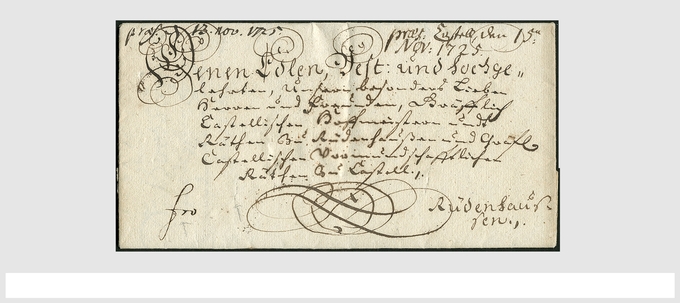 præs. 13. nov. 1725.
præs. Castell, den 15ten
Nov: 1725.
Denen Edlen, Vest: und hochge„
lehrten, Unsern besonders Lieben
Herren und Freunden, Gräfflich
Castellischen Hoffmeistern undt
Räthen zu Rüdenhaußen und Gräfl.
Castellischen Vormundschafftlichen
Räthen zu Castell.
fro
Rüdenhauß
sen.